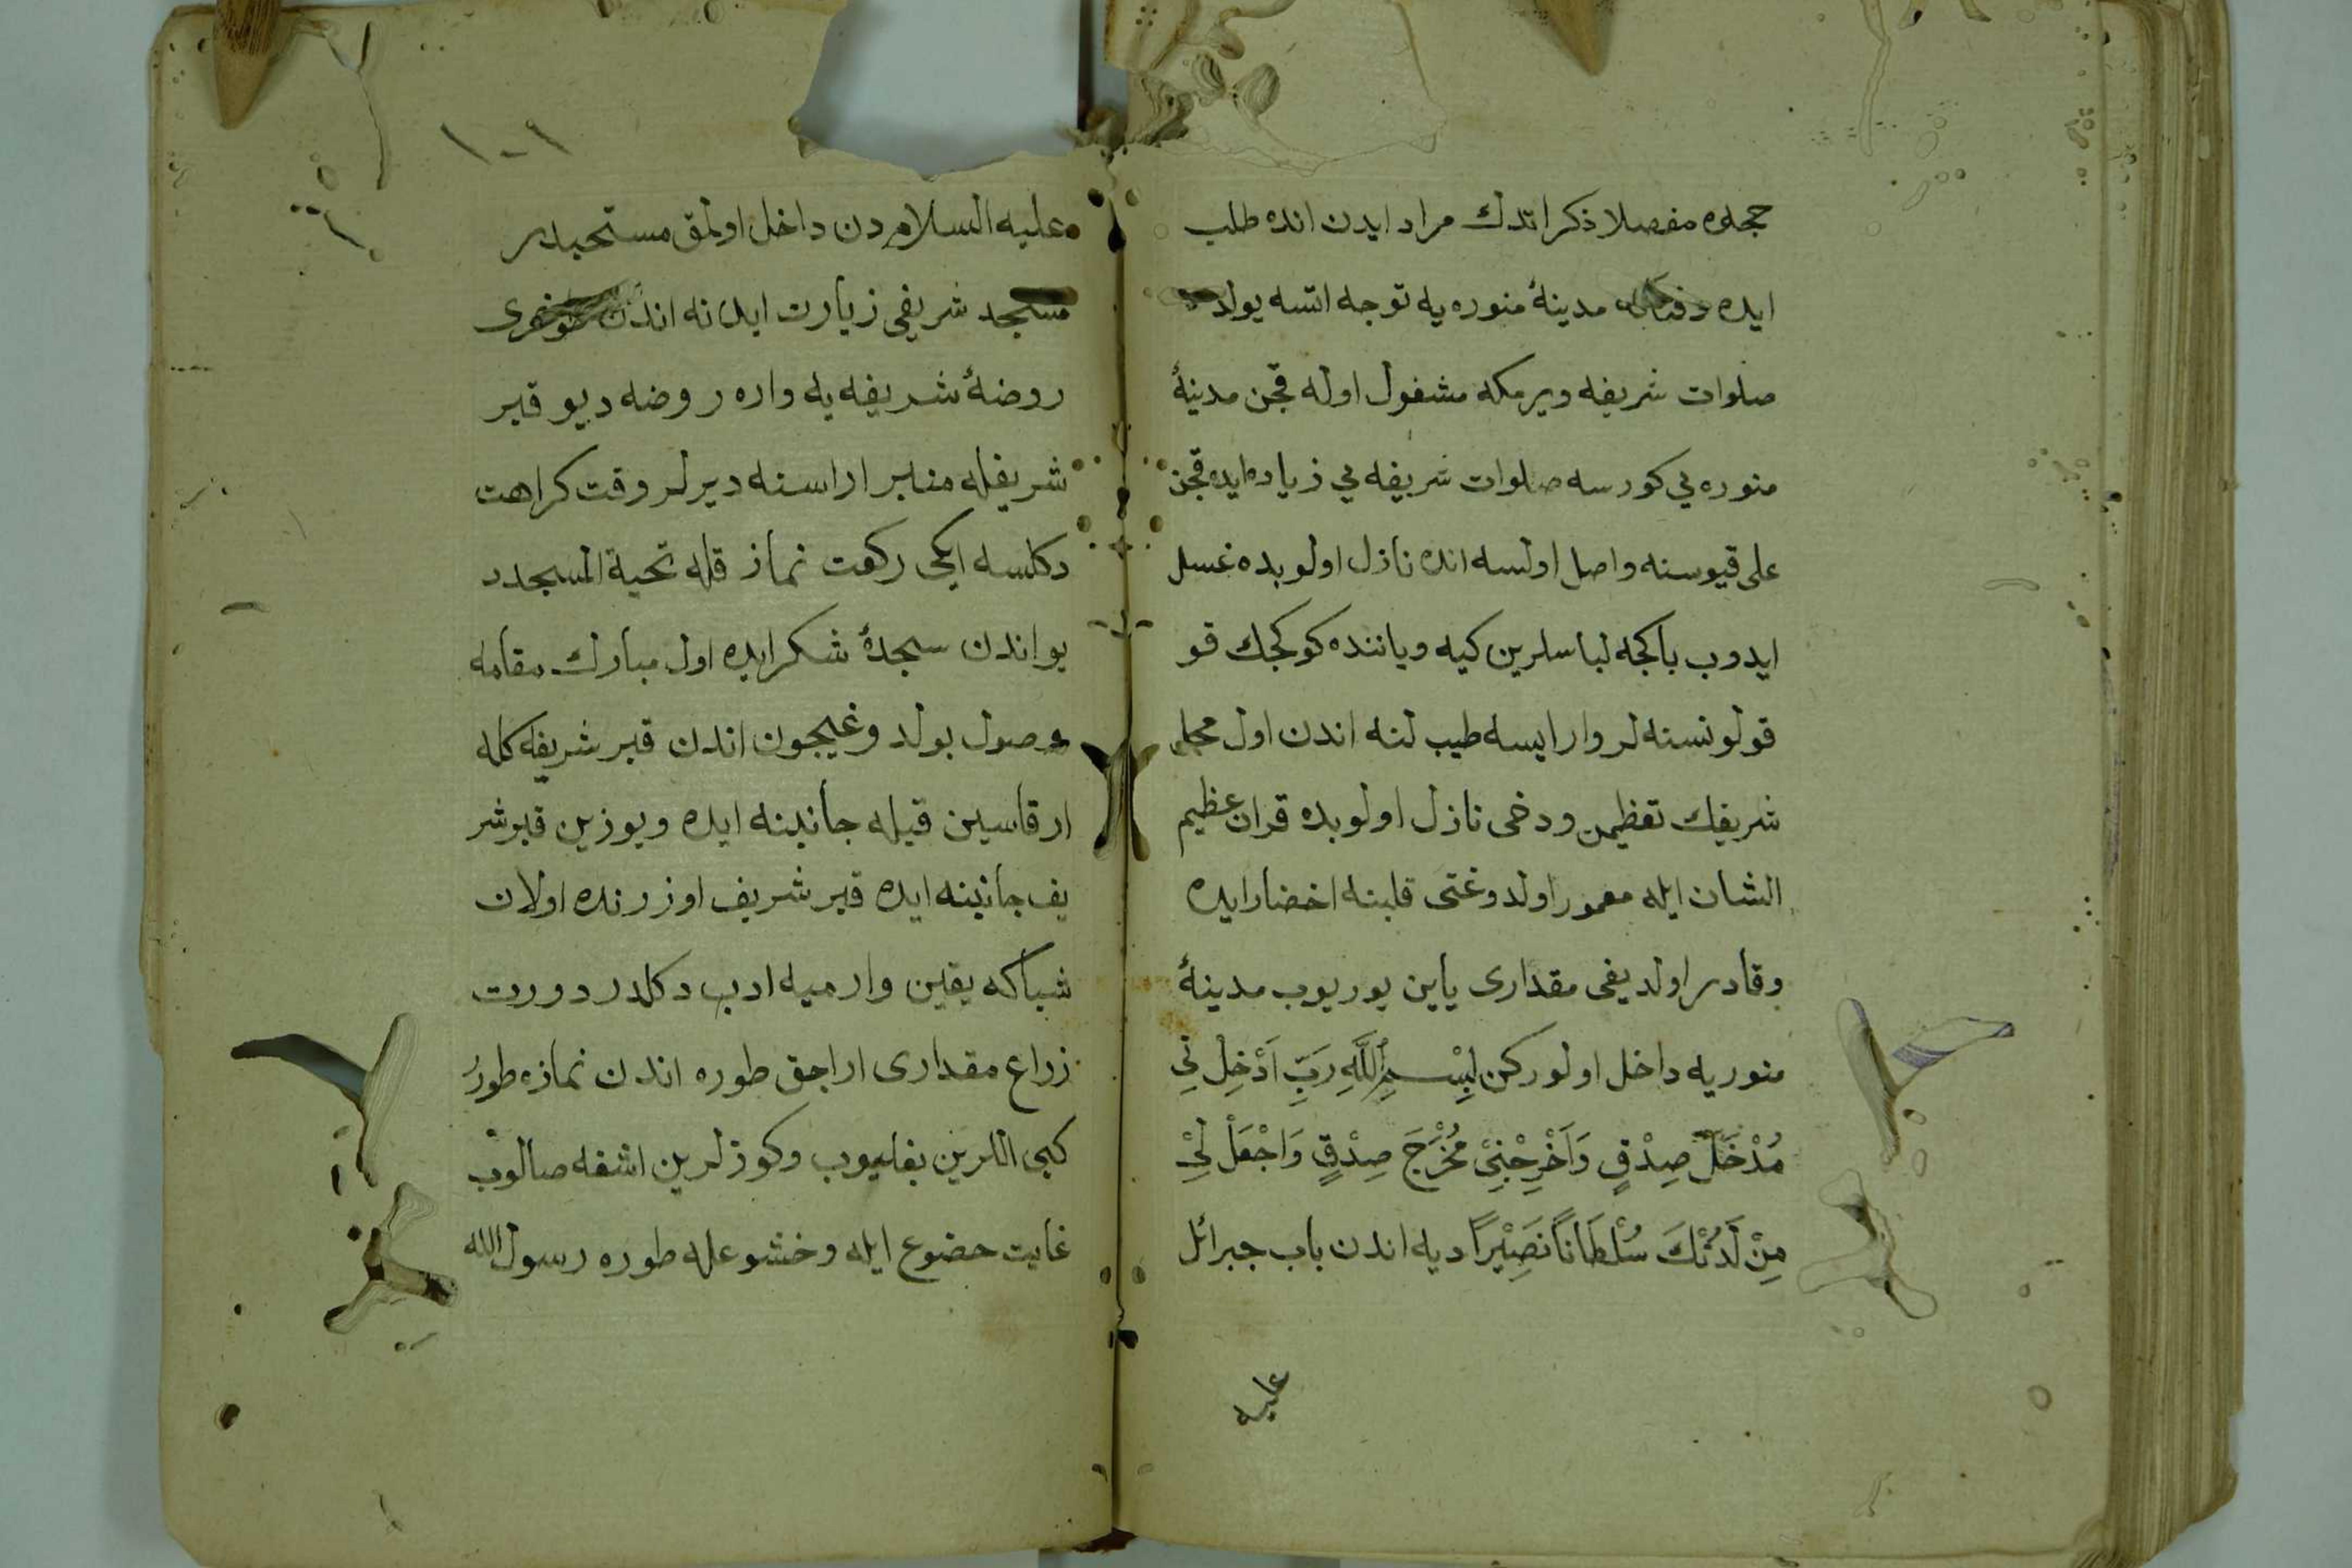 حجلده مفصلا ذكر اتدك مراد ايدن انده طلب
ايده مدينۀ منوره يه توجه اتسه يولده
صلوات شريفه ويرمكه مشغول اوله قچن مدينۀ
منوره يي كورسه صلوات شريفه يي زياده ايده قچن
على قپوسنه واصل اولسه انده نازل اولوبده غسل
ايدوب پاكجه لباسلرين كيه وياننده كوكجك قو
قولو نسنه لر وار ايسه طيب لنه اندن اول محل
شريفك تعظيمن ودخى نازل اولوبده قران عظيم
الشان ايله معمور اولدوغنى قلبنه احضار ايده
وقادر اولديغى مقدارى ياين يوريوب مدينۀ
منوريه داخل اولوركن بِسْمِ اللَّهِ رَبِّ اَدْخِلْنِي
مُدْخَلَ صِدْقٍ وَاَخْرِجْنِيْ مُخْرَجَ صِدْقٍ وَاجْعَلْ لِيْ
مِنْ لَدُنْكَ سُلْطَانًا نَصِيْرًا ديه اندن باب جبرائل
عليه
١٠١
عليه السلام دن داخل اولمق مستحبدر
مسجد شريفى زيارت ايده نه اندن
روضۀ شريفه يه واره روضه ديو قبر
شريفله منبر اراسنه ديرلر وقت كراهت
دكلسه ايكى ركعت نماز قله تحية المسجدد
يو اندن سجدۀ شكر ايده اول مبارك مقامه
وصول بولدوغيچون اندن قبر شريفه كله
ارقاسين قبله جانبنه ايده ويوزين قبر شر
يف جانبنه ايده قبر شريف اوزرنده اولان
شباكه يقين وارميه ادب دكلدر دورت
زراع مقدارى اراجق طوره اندن نمازه طورر
كبى اللرين بغليوب وكوزلرين اشغه صالوب
غايت حضوع ايله وخشوعله طوره رسول الله